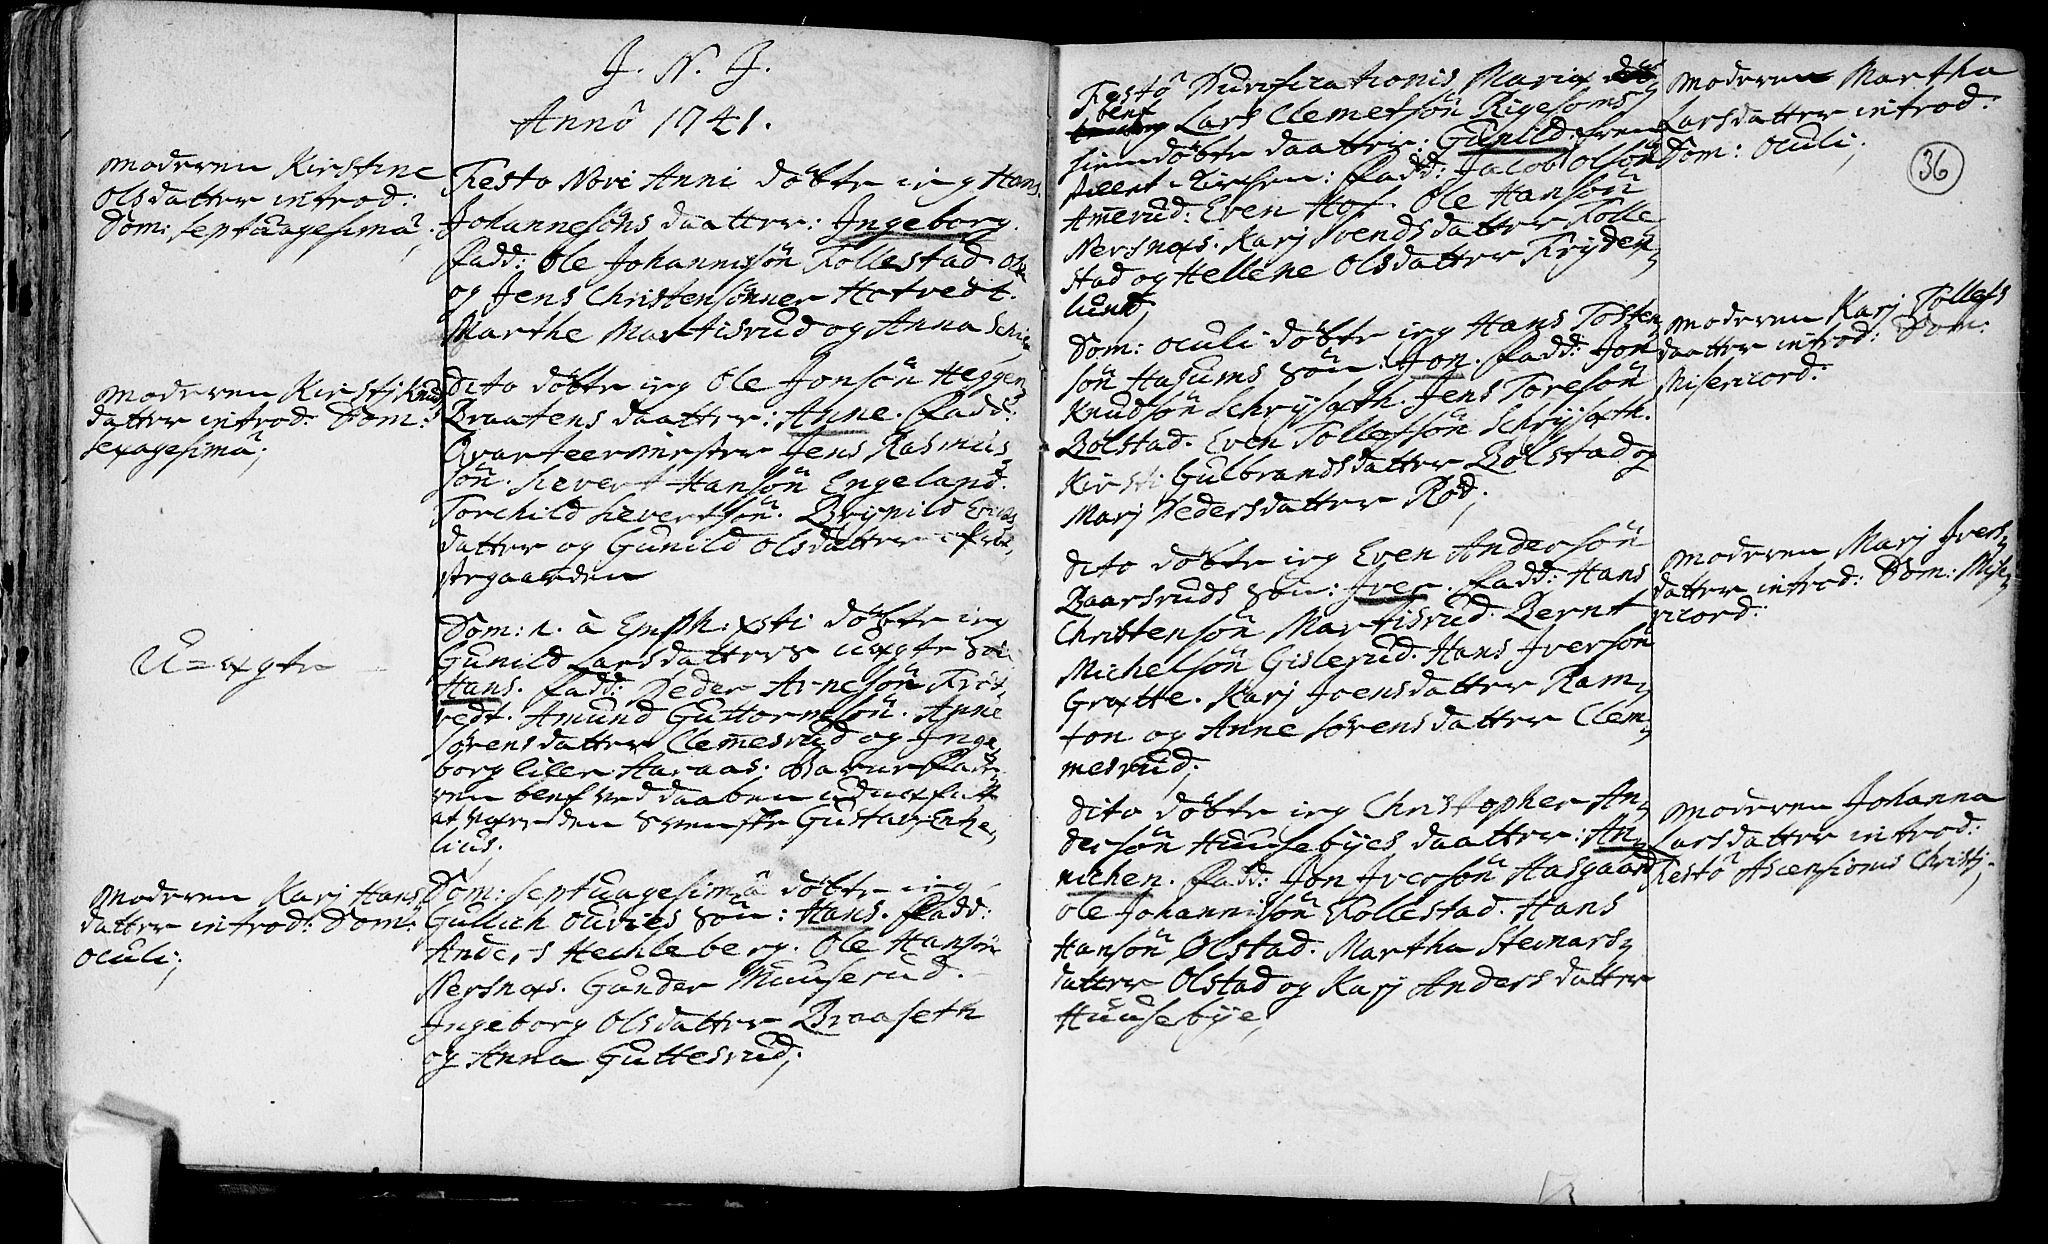 J. N. J.
Annô 1741.
Moderen Kirstine
Olsdatter introd:
Dom: Septuagesimâ,
Festo Novi Anni döbte ieg Hans
Johannesöns daatter: Ingeborg.
Fadd: Ole Johannisön Follestad Ole
og Jens Christensönner Hotvedt.
Marthe Martisrud og Anna
Moderen Kirstj Knuds
datter introd: Dom:
Sexagesimâ;
Dito döbte ieg Ole Jonsön Heggen
Braatens daatter: Anne. Fadd:
Qvarteermester Jens Rasmus
sön. Sievert Hansön Engeland.
Torchild Sievertsön. Brynild
datter og Gunild Olsdatter i Præ
stegaarden
U=ægte
Dom: 1. à Epiph: Xsti döbte ieg
Gunild Larsdatters uægte Sön
Hans. Fadd: Peder Arnesön
vedt. Amund Guttormsön. Anne
Sörensdatter Clemesrud og Inge
borg Lille Haraas. Barnefade
ren blef ved daaben udnæfnt
at være den Svenske Gustav
lius;
Moderen Karj Hans
datter introd: Dom:
Oculi;
Dom: Septuagesimâ döbte ieg
Gullich Oudies Sön: Hans. Fadd:
Anders Hechleberg. Ole Hansön
Nersnæs. Gunder Muuserud.
Ingeborg Olsdatter Braaseth
og Anna Guttesrud;
36
Festô Purificationis Mariæ
blef Lars Clemetsön Rigesoms
hiemdöbte daatter: Gunild frem
stillet i Kirken: Fadd: Jacob Olsön
Amerud: Even Hof. Ole Hansön
Nersnæs. Karj Svendsdatter Folle
stad og Hellene Olsdatter Fryden
lund;
Moderen Martha
Larsdatter introd:
Dom: Oculi;
Dom: Oculi döbte ieg Hans Tosten
sön Hasums Sön: Jon. Fadd: Jon
Knudsön Schrÿsæth. Jens Toresön
Bölstad. Even Tollefsön Schrÿsæth.
Kirsti Gulbrandsdatter Bolstad og
Marj Pedersdatter Röd;
Moderen Karj Tollefs
daatter introd: Dom:
Misericord:
Dito döbte ieg Even Andersön
Baarsruds Sön: Iver. Fadd: Hans
Christensön Martisrud. Bernt
Michelsön Gislerud. Hans Iversön
Grætte. Karj Joensdatter Ram
ton og Anne Sörensdatter Clem
mesrud;
Moderen Marj Ivers
datter introd: Dom: Mise
ricord:
Dito döbte ieg Christopher An
dersön Huusebÿes daatter: An
nichen. Fadd: Jon Iversön Hasgaard
Ole Johannisön Follestad. Hans
Hansön Olstad. Martha Steinars
datter Olstad og Karj Anders datter
Huusebÿe;
Moderen Johanna
Larsdatter introd:
Festô Ascensionis Christi;